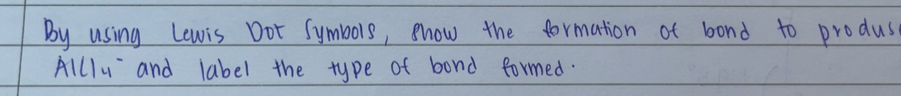 By using Lewis Dot Symbols, show the formation of bond to produs
AlCl4⁻ and label the type of bond formed.